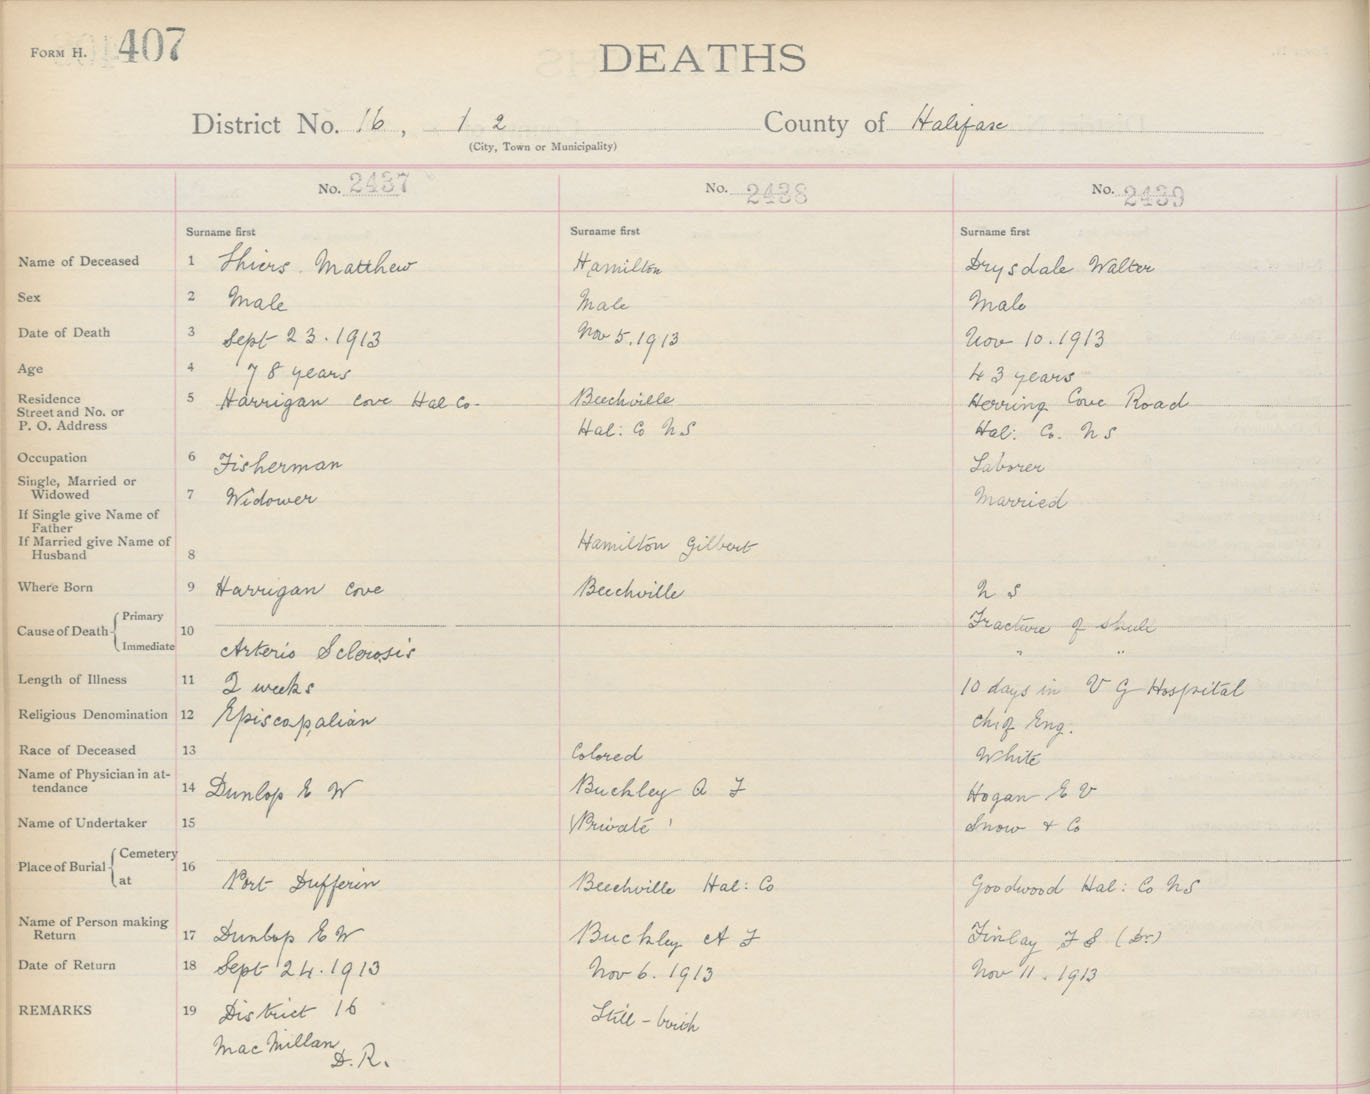 FORM H. 407
DEATHS
District No. 16, 12 County of Halifax
(City, Town or Municipality)
No. 2437 No. 2438 No. 2439
Surname first Surname first Surname first
Name of Deceased 1 Shiers. Matthew Hamilton Drysdale Walter
Sex 2 Male Male Male
Date of Death 3 Sept 23. 1913 Nov 5. 1913 Nov 10. 1913
Age 4 78 years 43 years
Residence 5 Harrigan Cove Hal Co. Beechville Herring Cove Road
Street and No. or
P. O. Address Hal: Co NS Hal: Co. NS
Occupation 6 Fisherman Laborer
Single, Married or
Widowed 7 Widower Married
If Single give Name of
Father
If Married give Name of Hamilton Gilbert
Husband 8
Where Born 9 Harrigan Cove Beechville N S
Cause of Death Primary 10 Fracture of Skull
Immediate Arterio Sclerosis " "
Length of Illness 11 2 weeks 10 days in V G Hospital
Religious Denomination 12 Episcopalian Ch of Eng.
Race of Deceased 13 Colored White
Name of Physician in at-
tendance 14 Dunlop E W Buckley A F Hogan E V
Name of Undertaker 15 Private Snow & Co
Place of Burial Cemetery 16
at Port Dufferin Beechville Hal: Co Goodwood Hal: Co NS
Name of Person making
Return 17 Dunlop E W Buckley A F Finlay F S (Dr)
Date of Return 18 Sept 24. 1913 Nov 6. 1913 Nov 11. 1913
REMARKS 19 District 16 Still-birth
MacMillan
D. R.